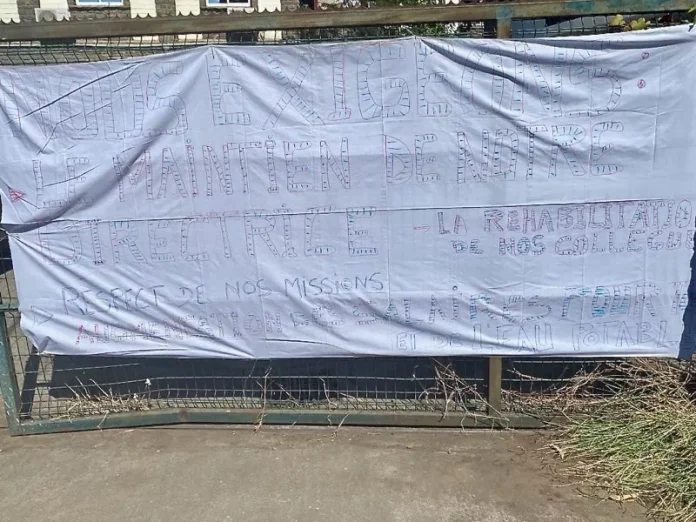 NOUS EXIGEONS
LE MAINTIEN DE NOTRE
DIRECTRICE
- LA REHABILITATIO
DE NOS COLLEGU
- RESPECT DE NOS MISSIONS
- AUGMENTATION DES SALAIRES POUR
ET DE L'EAU POTABL